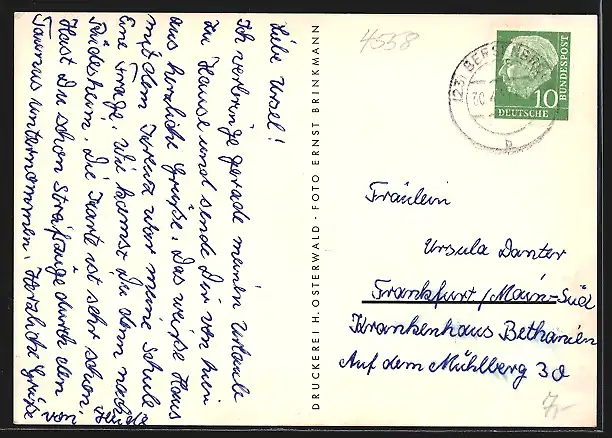 Liebe Ursel!
Ich verbringe gerade meinen Urlaub
zu Hause und sende Dir von hier
aus herzliche Grüße. Das weiße Haus
mit dem Kreuz war meine Schule
Eine Frage. Wie kamst Du denn nach
Rüdesheim. Die Karte ist sehr schön.
Hast Du schon Streifzüge durch den
Taunus unternommen. Herzliche Grüße
von Heide
DRUCKEREI H. OSTERWALD · FOTO ERNST BRINKMANN
4558
(23) BERSENBRÜCK
b
10
DEUTSCHE
BUNDESPOST
Fräulein
Ursula Danter
Frankfurt/Main-Süd
Krankenhaus Bethanien
Auf dem Mühlberg 30
7,-